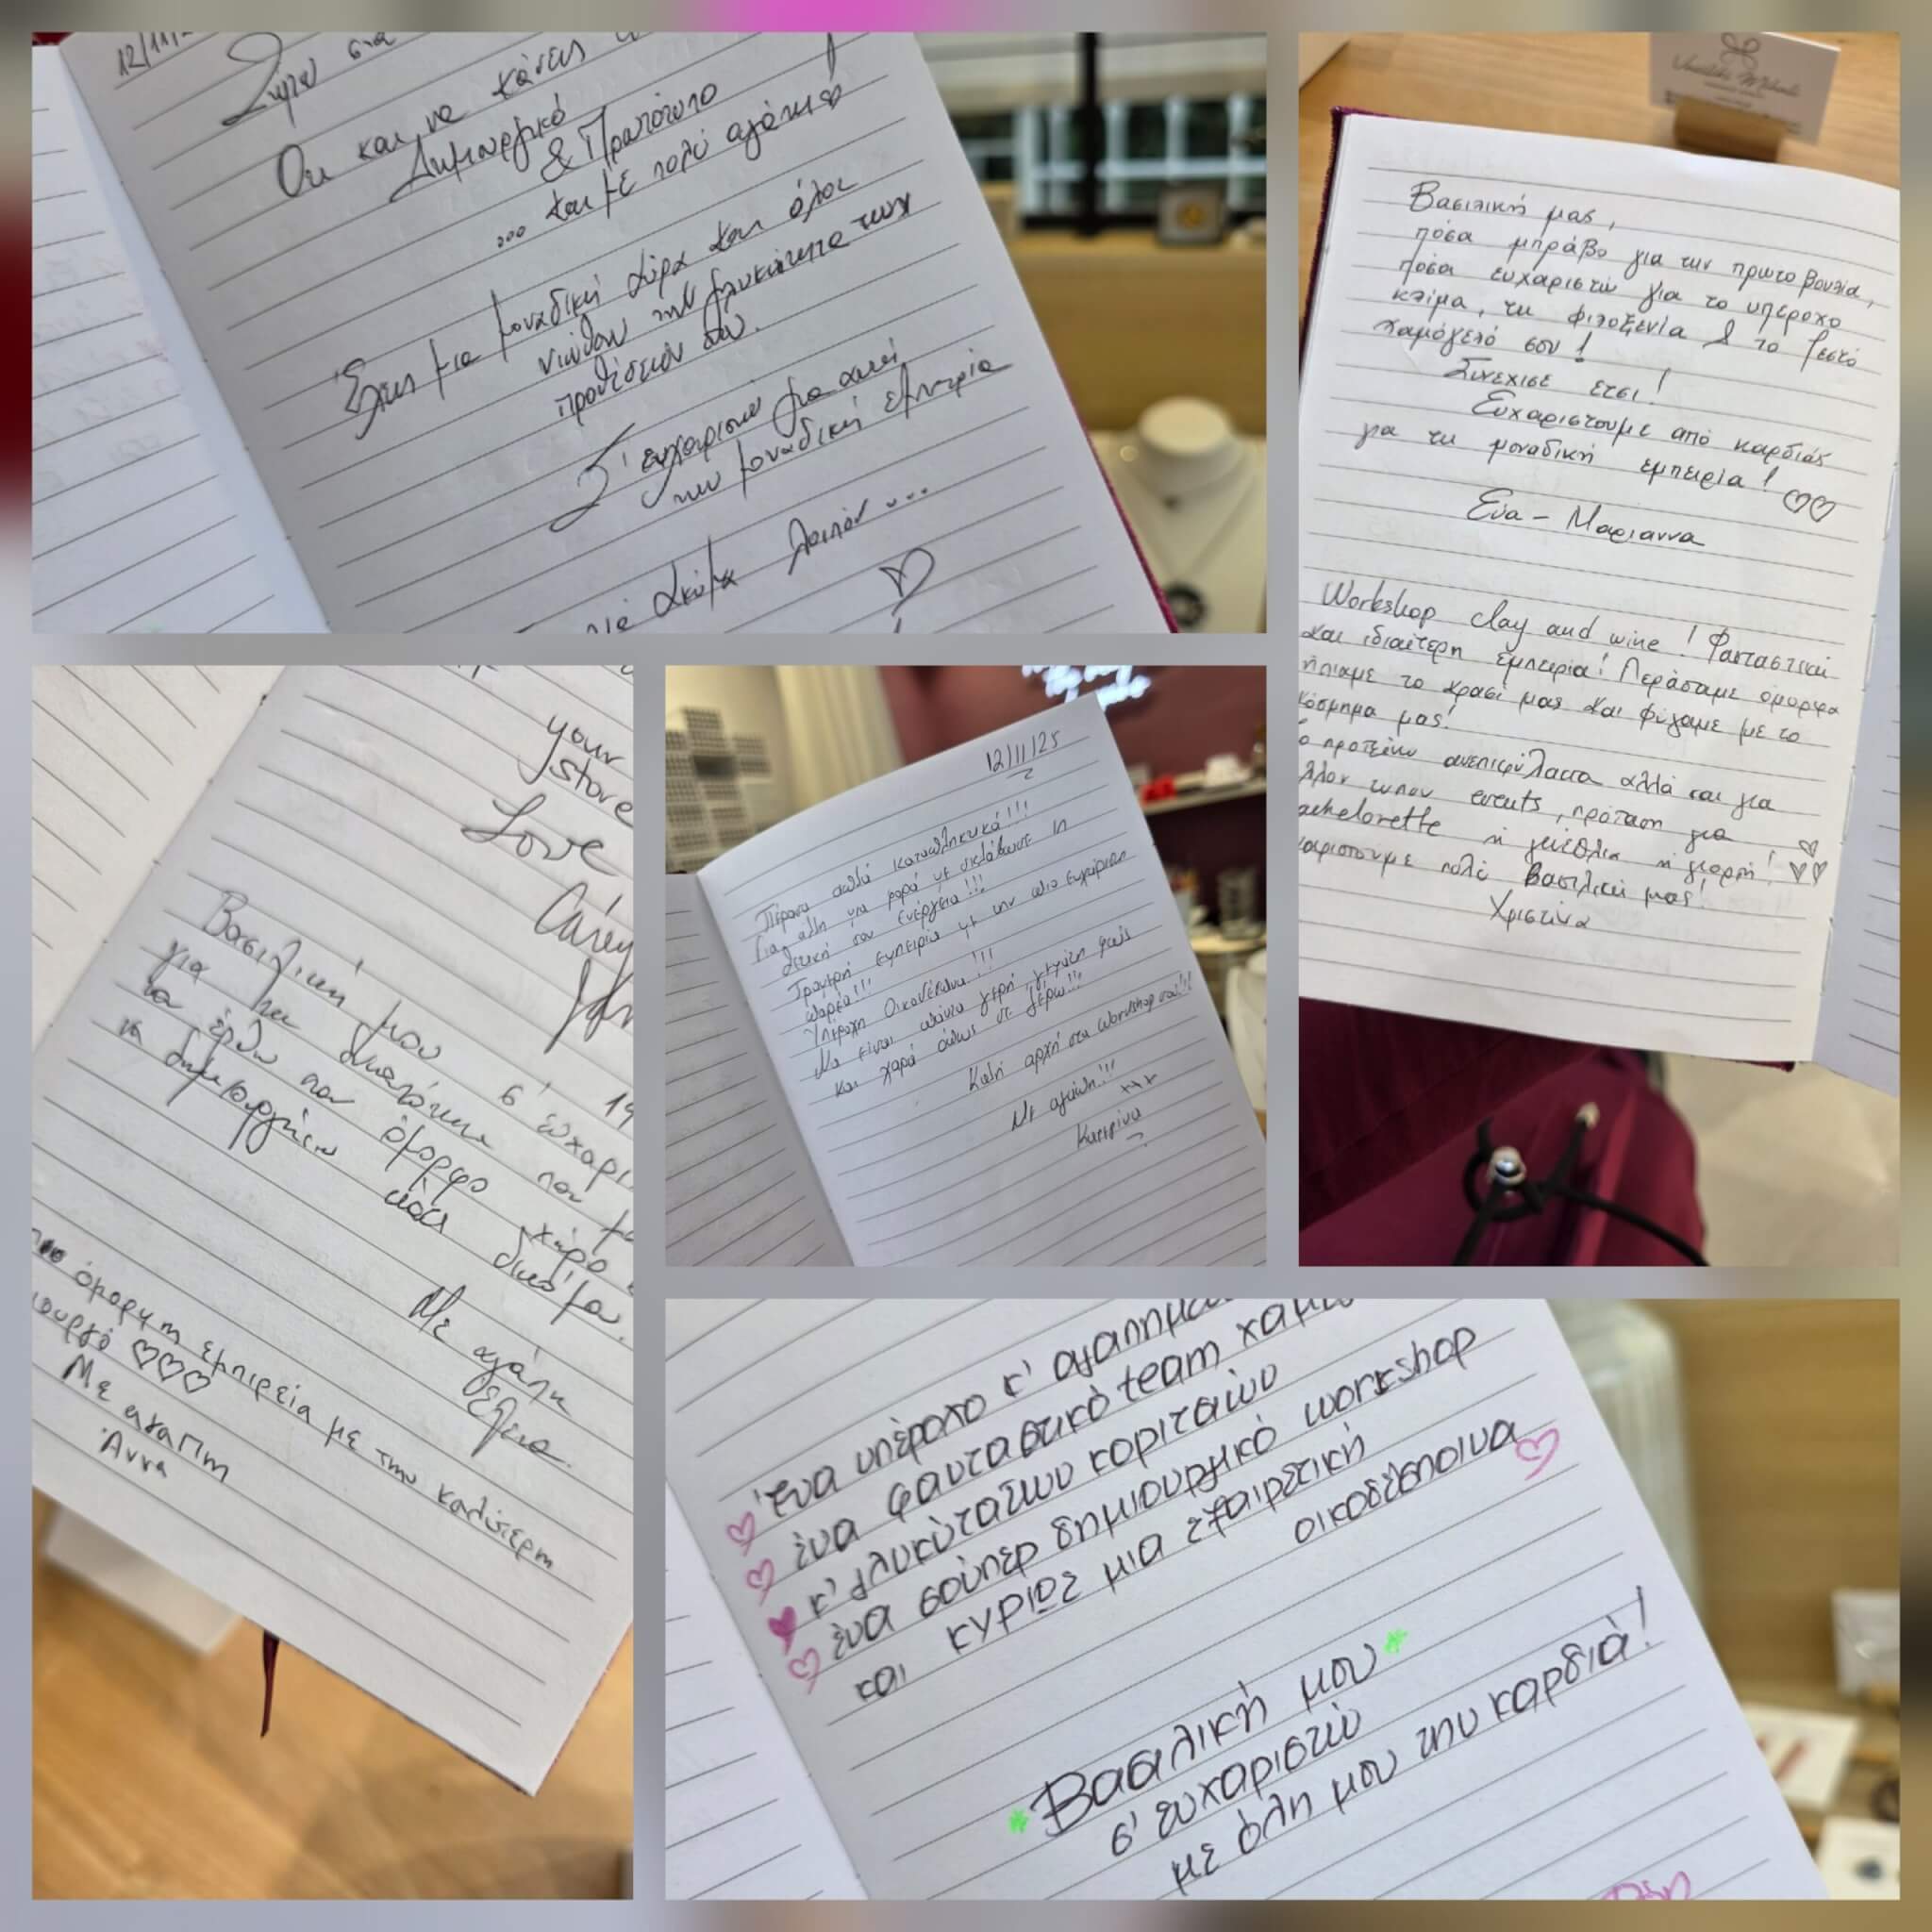 12/11/
Ότι και να κάνεις
Δημιουργικό
& Πρωτότυπο
... και με πολύ αγάπη
Έχεις μια μοναδική αύρα και όλοι
νιώθουν την γλυκύτητα των
προθέσεών σου.
Σ' ευχαριστώ για αυτή
την μοναδική εμπειρία
λοιπόν ...
Βασιλική μας,
πόσα μπράβο για την πρωτοβουλία,
πόσα ευχαριστώ για το υπέροχο
κλίμα, τη φιλοξενία & το ζεστό
χαμόγελό σου!
Συνέχισε έτσι!
Ευχαριστούμε από καρδιάς
για τη μοναδική εμπειρία! ♡♡
Εύα - Μαριαννα
Workshop clay and wine! Φανταστική
και ιδιαίτερη εμπειρία! Περάσαμε όμορφα
ήπιαμε το κρασί μας και φύγαμε με το
κόσμημα μας!
ο προτείνω ανεπιφύλακτα αλλά και για
άλλου τύπου events, πρόταση για
achelorette ή γενέθλια ή γιορτή!
χαριστουμε πολύ Βασιλική μας!
Χριστίνα
your
store
Love
Carey
Βασιλική μου σ' ευχαρι
για τη δυνατότητα που μο
να έρθω στον όμορφο χώρο
να δημιουργήσω κάτι δικό μου.
Με αγάπη
όμορφη εμπειρεία με την καλύτερη
ιουργό ♡♡♡
Με αγαπη
Άννα
12/11/25
Πέρασα απλά καταπληκτικά!!!
Για άλλη μια φορά με
θετική σου ενέργεια!!!
Τρομερή εμπειρία με την πιο ευχάριστη
παρέα!!!
Υπέροχη Οικοδέσποινα!!!
Να είσαι πάντα γερή, γεμάτη φως
και χαρά όπως σε ξέρω!!!
Καλή αρχή στα workshop σου!!!
Με αγάπη!!!
xxx
Κατερίνα
♡ Ένα υπέροχο κ' αγαπημ
♡ ένα φανταστικό team χαμ
♥ κ' γλυκύτατων κοριτσιών
♡ ένα σούπερ δημιουργικό workshop
και κυρίως μια εξαιρετική
οικοδέσποινα ♡
* Βασιλική μου *
σ' ευχαριστώ
με όλη μου την καρδιά!